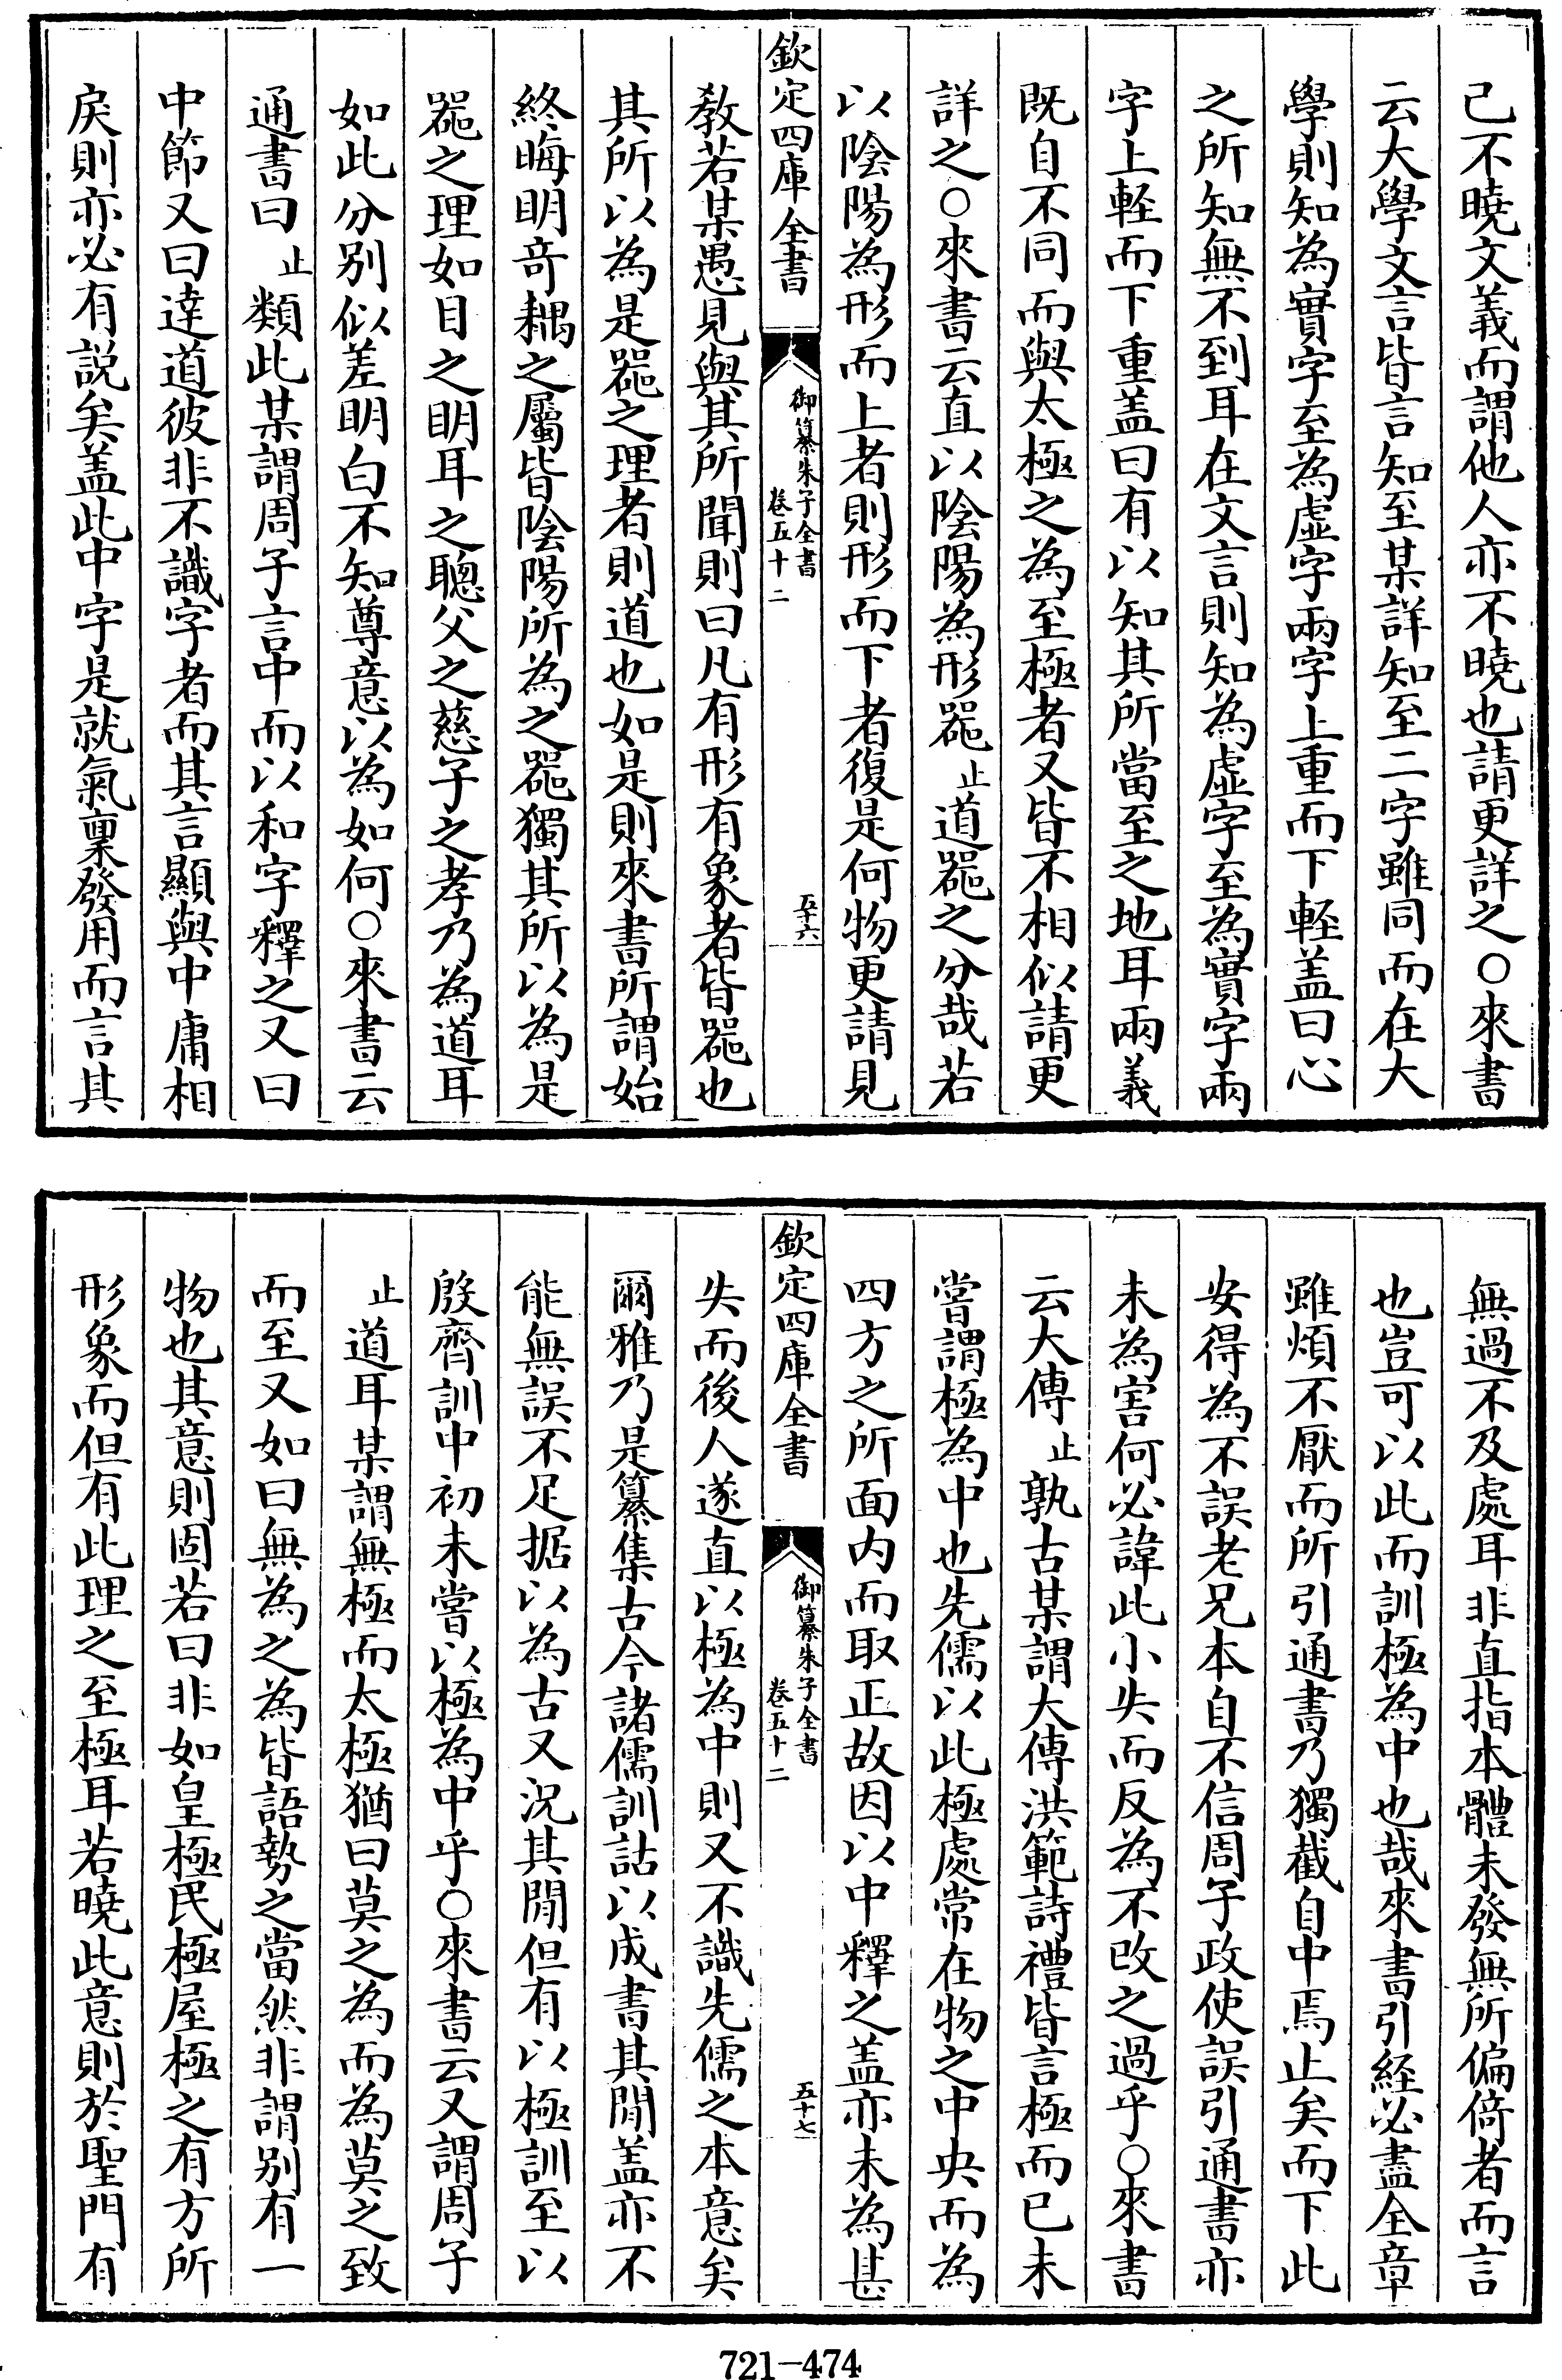 己不曉文義而謂他人亦不曉也請更詳之○來書
云大學文言皆言知至某詳知至二字雖同而在大
學則知為實字至為虛字兩字上重而下輕蓋曰心
之所知無不到耳在文言則知為虛字至為實字兩
字上輕而下重蓋曰有以知其所當至之地耳兩義
既自不同而與太極之為至極者又皆不相似請更
詳之○來書云直以陰陽為形器止道器之分哉若
以陰陽為形而上者則形而下者復是何物更請見
欽定四庫全書
御纂朱子全書
卷五十二
五十六
教若某愚見與其所聞則曰凡有形有象者皆器也
其所以為是器之理者則道也如是則來書所謂始
終晦明奇耦之屬皆陰陽所為之器獨其所以為是
器之理如目之明耳之聰父之慈子之孝乃為道耳
如此分別似差明白不知尊意以為如何○來書云
通書曰止類此某謂周子言中而以和字釋之又曰
中節又曰達道彼非不識字者而其言顯與中庸相
戾則亦必有説矣蓋此中字是就氣稟發用而言其
無過不及處耳非直指本體未發無所偏倚者而言
也豈可以此而訓極為中也哉來書引經必盡全章
雖煩不厭而所引通書乃獨截自中焉止矣而下此
安得為不誤老兄本自不信周子政使誤引通書亦
未為害何必諱此小失而反為不改之過乎○來書
云大傳止孰古某謂大傳洪範詩禮皆言極而已未
嘗謂極為中也先儒以此極處常在物之中央而為
四方之所面内而取正故因以中釋之蓋亦未為甚
欽定四庫全書
御纂朱子全書
卷五十二
五十七
失而後人遂直以極為中則又不識先儒之本意矣
爾雅乃是纂集古今諸儒訓詁以成書其閒蓋亦不
能無誤不足据以為古又況其閒但有以極訓至以
殷齊訓中初未嘗以極為中乎○來書云又謂周子
止道耳某謂無極而太極猶曰莫之為而為莫之致
而至又如曰無為之為皆語勢之當然非謂別有一
物也其意則固若曰非如皇極民極屋極之有方所
形象而但有此理之至極耳若曉此意則於聖門有
721-474